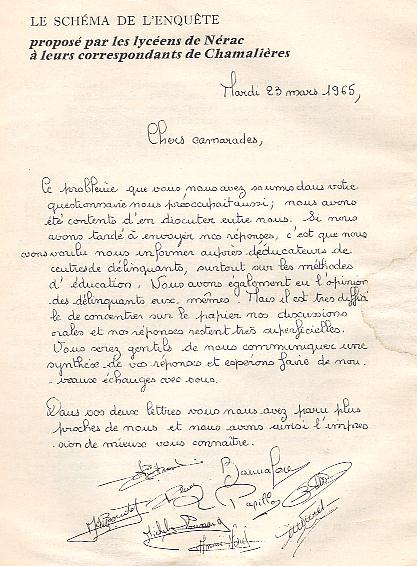 LE SCHÉMA DE L'ENQUÊTE
proposé par les lycéens de Nérac
à leurs correspondants de Chamalières
Mardi 23 mars 1965,
Chers camarades,
Ce problème que vous nous avez soumis dans votre
questionnaire nous préoccupait aussi; nous avons
été contents d'en discuter entre nous. Si nous
avons tardé à envoyer nos réponses, c'est que nous
avons voulu nous informer auprès d'éducateurs de
centres de délinquants, surtout sur les méthodes
d'éducation. Nous avons également eu l'opinion
des délinquants eux, mêmes. Mais il est très diffici
le de concentrer sur le papier nos discussions
orales et nos réponses restent très superficielles.
Vous serez gentils de nous communiquer une
synthèse de vos réponses et espérons faire de nou_
veaux échanges avec vous.
Dans vos deux lettres vous nous avez paru plus
proches de nous et nous avons ainsi l'impres
sion de mieux vous connaître.
Papillon